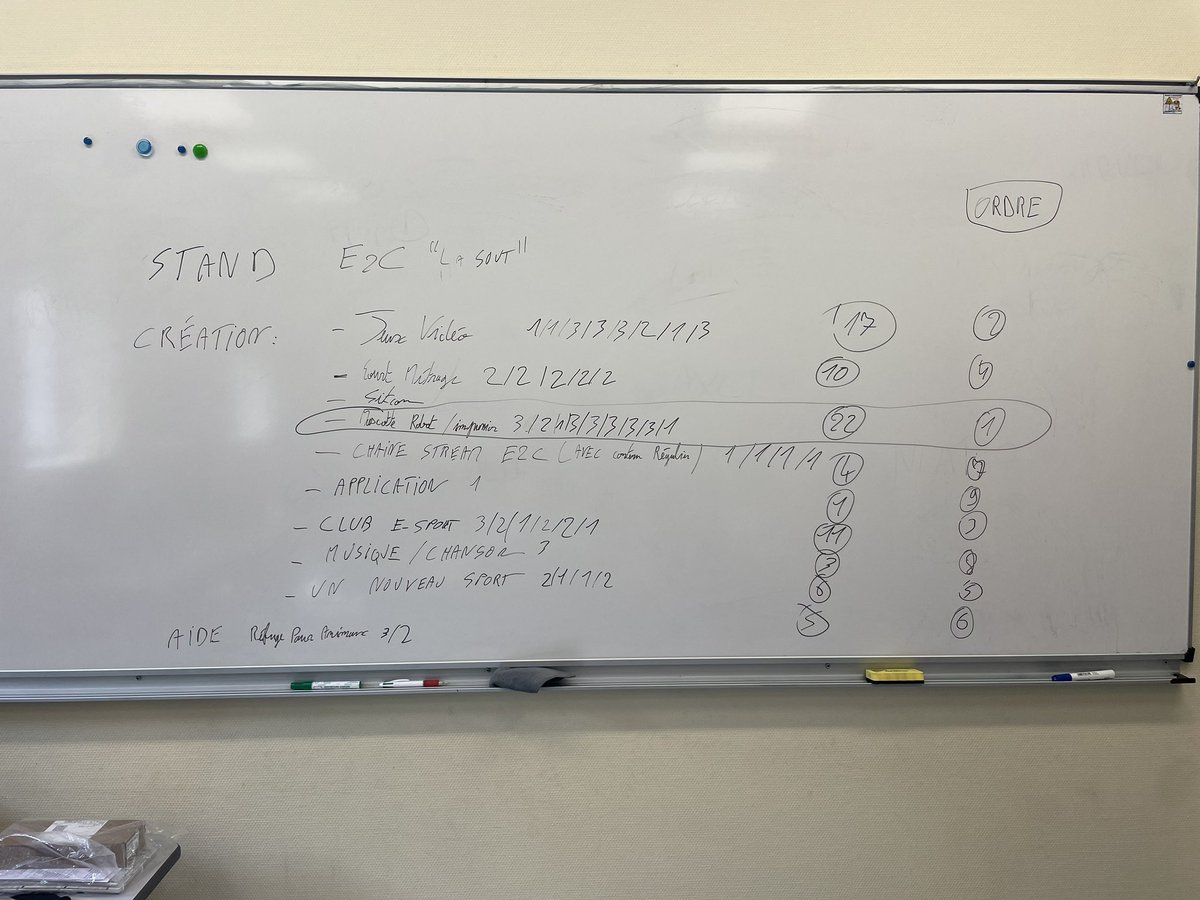 ORDRE
STAND E2C "La SOUT"
CRÉATION: - Jeux Vidéo 1/1/3/3/3/2/1/3 17 2
- Court Métrage 2/2/2/2/2 10 4
- Sitcom
- Mascotte Robot / imprimer 3/2/1/3/3/3/3/3/1 22 1
- CHAINE STREAM E2C (AVEC contenu Régulier) 1/1/1/1 4 7
- APPLICATION 1 1 9
- CLUB E-SPORT 3/2/1/2/2/1 11 3
- MUSIQUE / CHANSON 3 3 8
- UN NOUVEAU SPORT 2/1/1/2 6 5
AIDE Refuge Pour Animaux 3/2 5 6